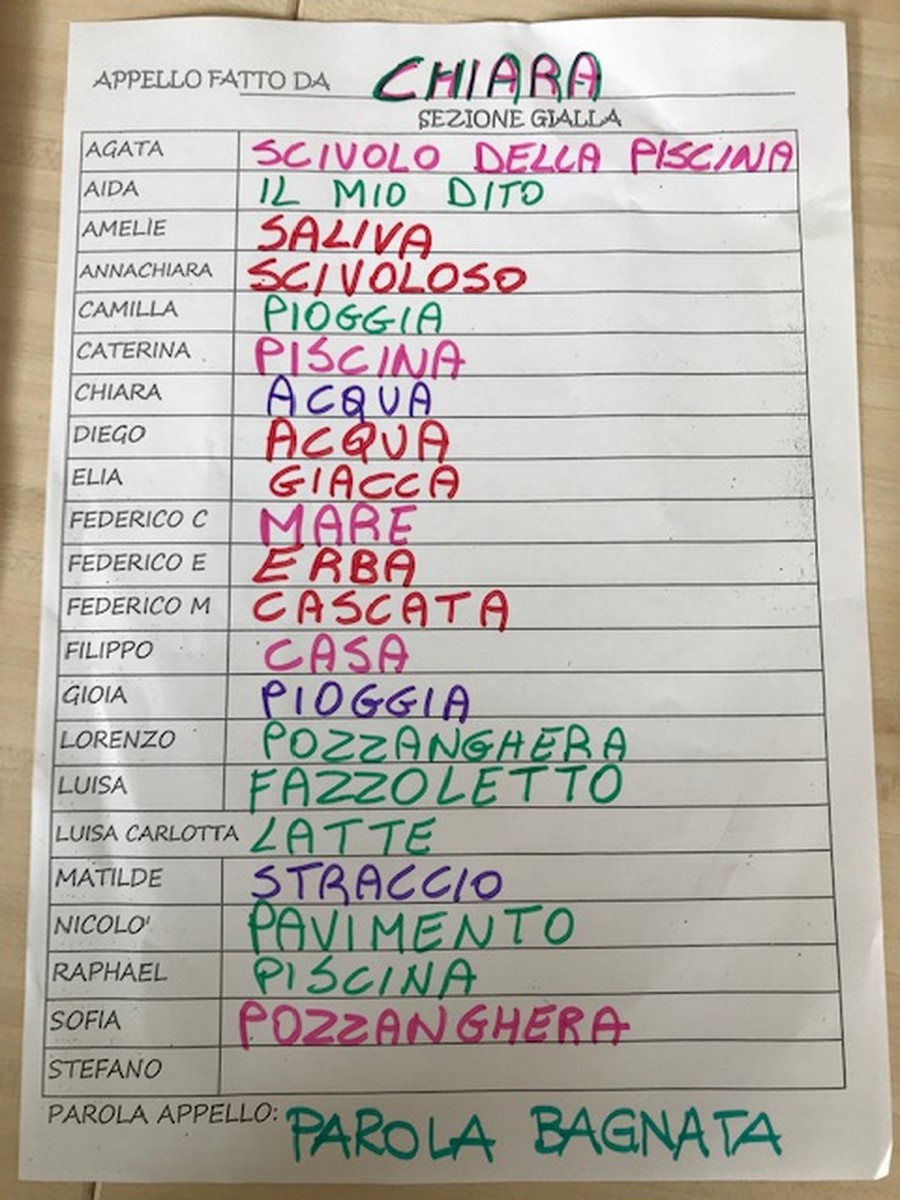 APPELLO FATTO DA CHIARA
SEZIONE GIALLA
AGATA SCIVOLO DELLA PISCINA
AIDA IL MIO DITO
AMELIE SALIVA
ANNACHIARA SCIVOLOSO
CAMILLA PIOGGIA
CATERINA PISCINA
CHIARA ACQUA
DIEGO ACQUA
ELIA GIACCA
FEDERICO C MARE
FEDERICO E ERBA
FEDERICO M CASCATA
FILIPPO CASA
GIOIA PIOGGIA
LORENZO POZZANGHERA
LUISA FAZZOLETTO
LUISA CARLOTTA LATTE
MATILDE STRACCIO
NICOLO' PAVIMENTO
RAPHAEL PISCINA
SOFIA POZZANGHERA
STEFANO
PAROLA APPELLO: PAROLA BAGNATA